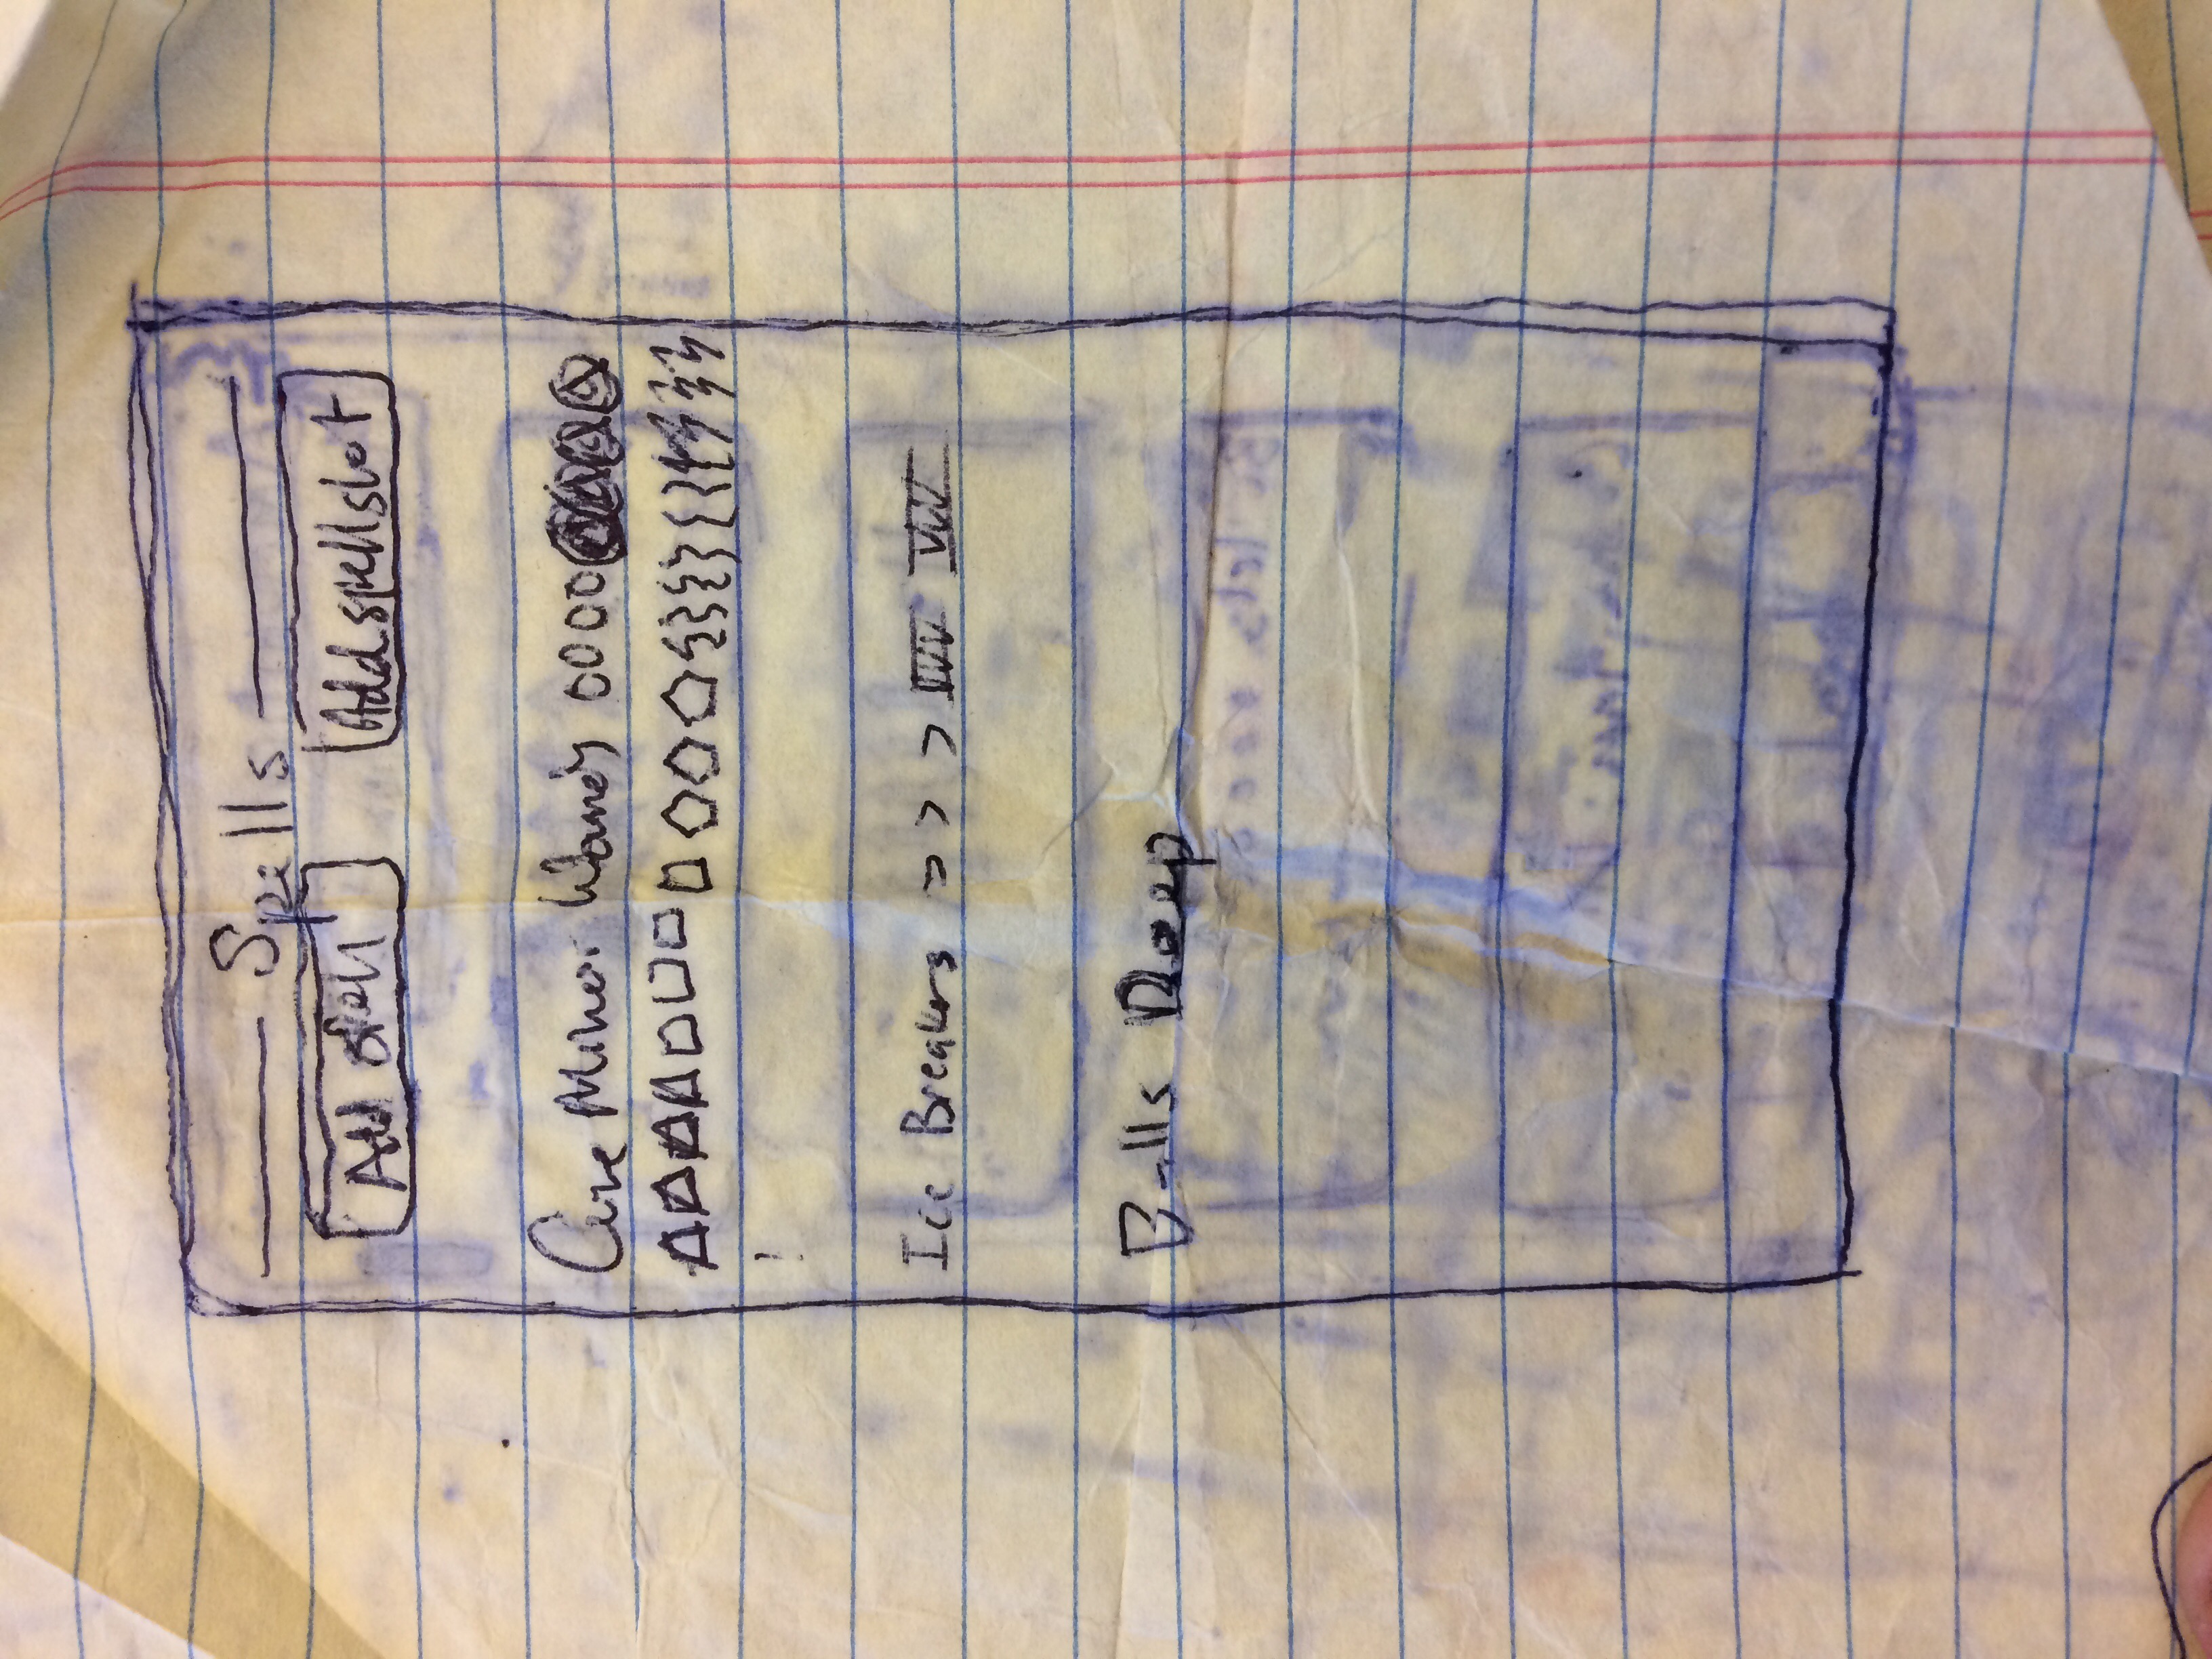 Spells
Add spell Add spellslot
Cure Minor Wounds
!
Ice Breakers > > >
Balls Deep